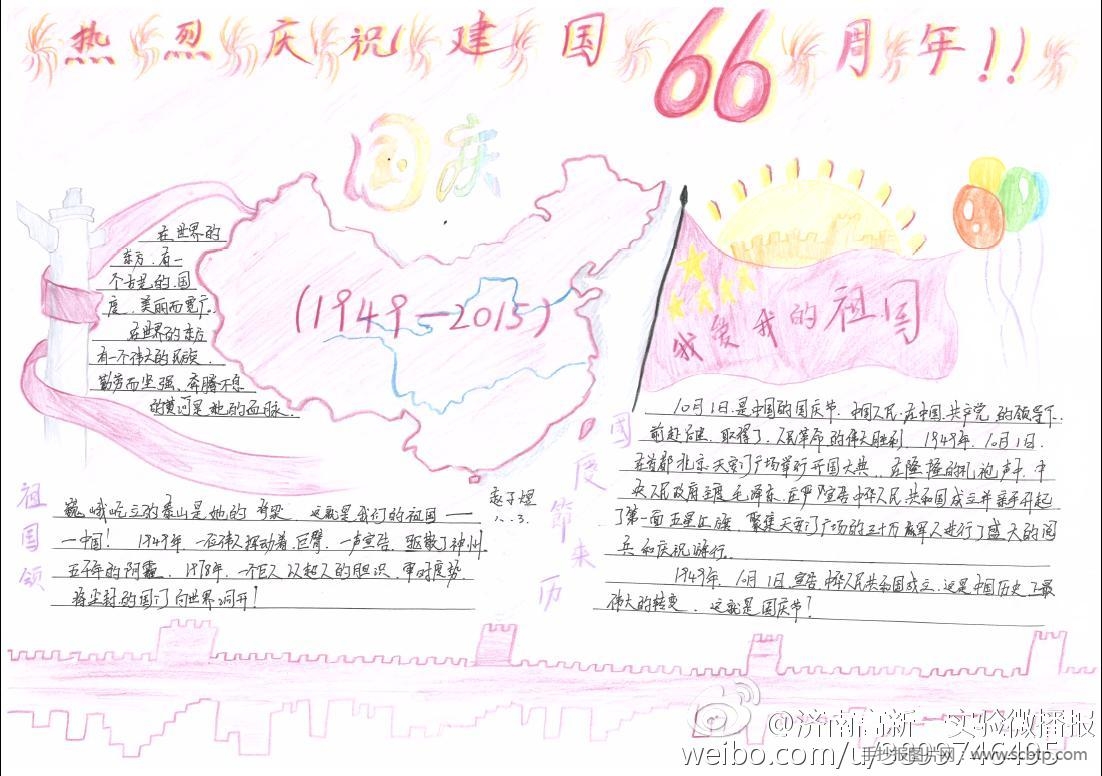 热烈庆祝建国66周年!!
国庆
(1949—2015)
在世界的
东方,有一
个古老的国
度,美丽而宽广。
在世界的东方
有一个伟大的民族,
勤劳而坚强,奔腾不息
的黄河是她的血脉,
巍峨屹立的泰山是她的脊梁,这就是我们的祖国——
—中国! 1949年,一位伟人挥动着巨臂,一声宣告,驱散了神州
五千年的阴霾,1978年,一个巨人以超人的胆识,审时度势,
将尘封的国门向世界洞开!
祖国颂
我爱我的祖国
国庆節来历
10月1日是中国的国庆节.中国人民在中国共产党的领导下,
前赴后继,取得了人民革命的伟大胜利,1949年,10月1日,
在首都北京天安门广场举行开国大典,在隆隆的礼炮声中,中
央人民政府主席毛泽东在宣告中华人民共和国成立并亲手升起
了第一面五星红旗,聚集天安门广场的三十万军人进行了盛大的阅
兵和庆祝游行。
1949年,10月1日,宣告中华人民共和国成立,这是中国历史上最
伟大的转变,这就是国庆节!
@济南高新一实验微播报
weibo.com/u/
手抄报图片网:www.scbtp.com